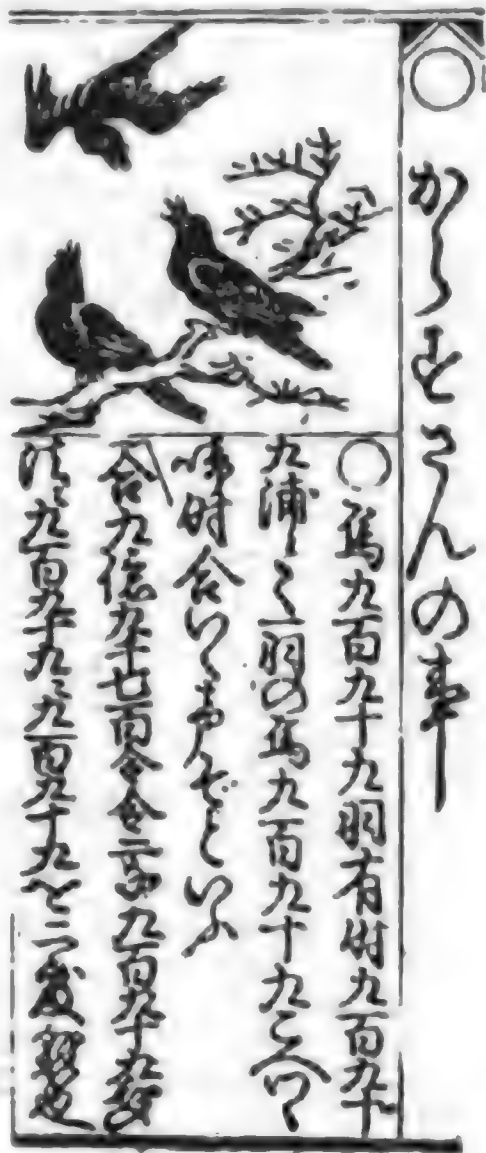 からすさんの事
烏九百九十九羽有時九百九十
九浦にて一羽の烏九百九十九こへつゝ
啼時合いく声ぞといふ
合九億九千七百令令二千九百九十九声
法ニ九百九十九ニ九百九十九を二度